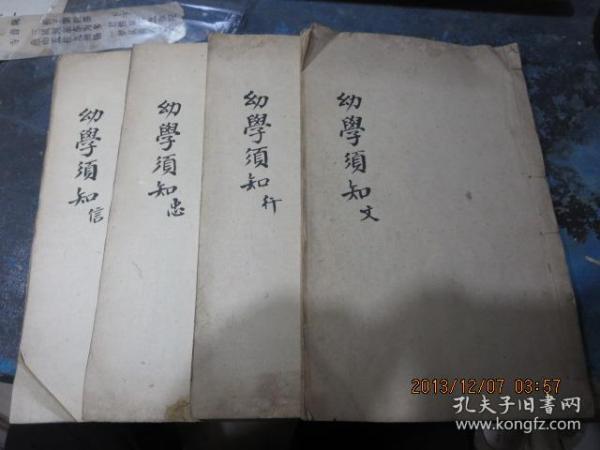 幼學須知文
幼學須知行
幼學須知忠
幼學須知信
2013/12/07 03:57
孔夫子旧书网
www.kongfz.com